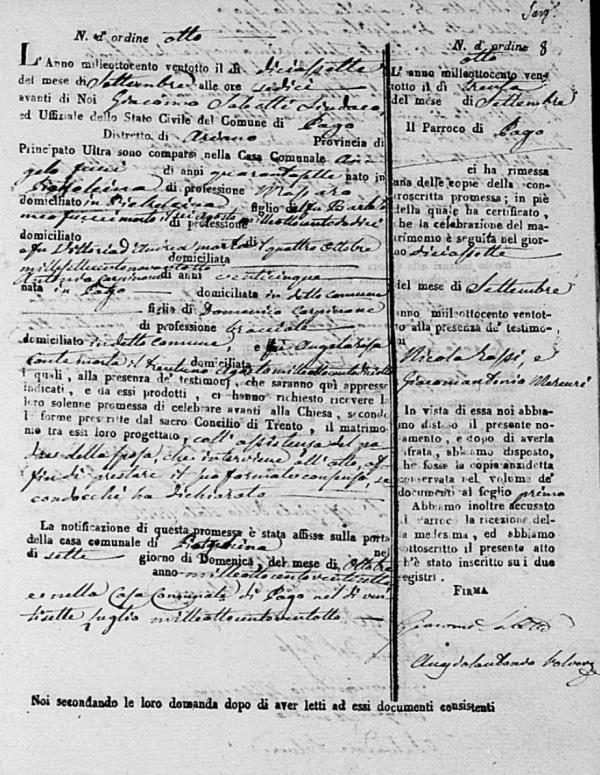 N. d'ordine otto
L'Anno milleottocento ventotto il dì diciassette
del mese di Settembre alle ore sedici
avanti di Noi Giacomo Sindaco,
ed Uffiziale dello Stato Civile del Comune di Pago
Distretto di Provincia di
Principato Ultra sono comparsi nella Casa Comunale An
gelo di anni quarantasette nato in
Pietrelcina di professione Massaro
domiciliato in Pietrelcina figlio del fu Bartolo
meo morto il sei Agosto milleottocentododici
di professione
domiciliato e di
fu Vittoria d'Andrea morta quattro Ottobre
domiciliata
millesettecentonovantotto
Antonia Carpinone di anni venticinque
nata in Pago domiciliata in detto comune
figlia di Domenico Carpinone
di professione bracciale
domiciliato in detto comune e fu Angelarosa
Conte morta il trentuno domiciliata
i quali, alla presenza de' testimonj, che saranno quì appresso
indicati, e da essi prodotti, ci hanno richiesto ricevere la
loro solenne promessa di celebrare avanti alla Chiesa, secondo
le forme prescritte dal sacro Concilio di Trento, il matrimo-
nio tra essi loro progettato, coll'assistenza del pa
dre della sposa, che interviene all'atto, af
fin di prestare il suo formale consenso, se
condocchè ha dichiarato
La notificazione di questa promessa è stata affissa sulla porta
della casa comunale di Pietrelcina nel
dì sette giorno di Domenica, del mese di Ottobre
anno milleottocentoventisette
e nella Casa Comunale di Pago nel dì ven
tisette Luglio milleottocentoventotto
Noi secondando le loro domanda dopo di aver letti ad essi documenti consistenti
N. d'ordine 8
otto
L'anno milleottocento ven-
totto il dì trenta
del mese di Settembre
Il Parroco di Pago
ci ha rimessa
una delle copie della con-
troscritta promessa; in piè
della quale ha certificato,
che la celebrazione del ma-
trimonio è seguita nel gior-
no diciassette
del mese di Settembre
anno milleottocento ventot-
to alla presenza de' testimo-
nj
Nicola Rossi, e
Giacomantonio Mercuri
In vista di essa noi abbia-
mo disteso il presente no-
tamento, e dopo di averla
cifrata, abbiamo disposto,
che fosse la copia anzidetta
conservata nel volume de'
documenti al foglio primo
Abbiamo inoltre accusato
al Parroco la ricezione del-
la medesima, ed abbiamo
sottoscritto il presente atto
ch'è stato inscritto su i due
registri.
FIRMA
Giacomo